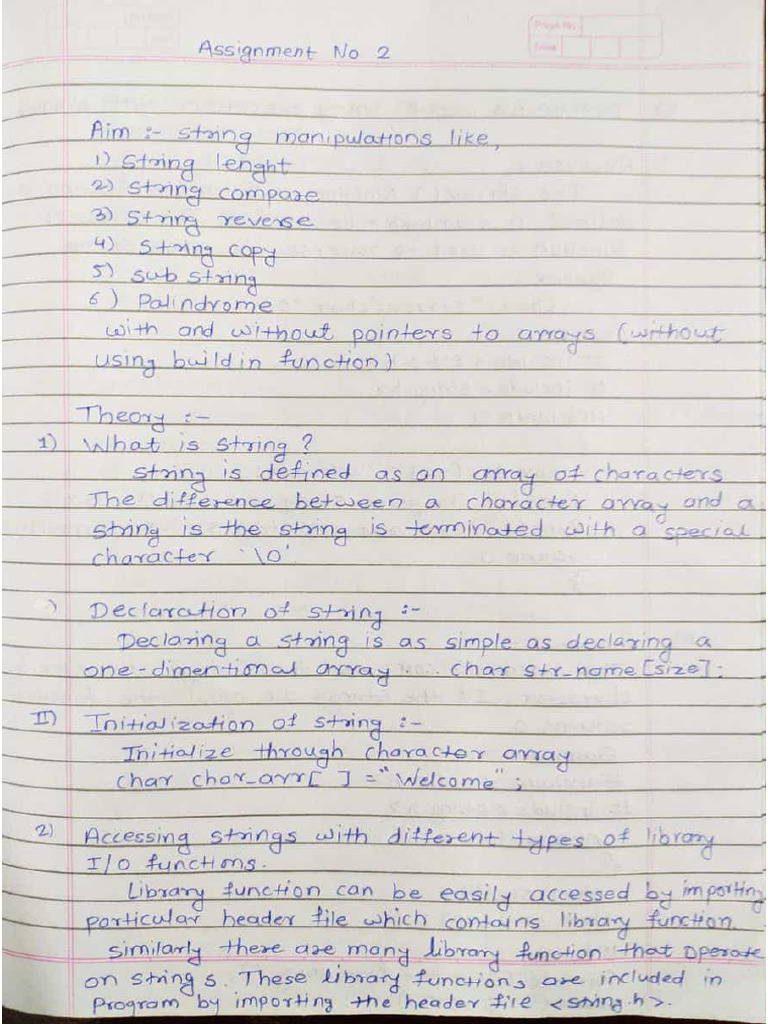 Page No.
Date
Assignment No 2
Aim :- String manipulations like,
1) String lenght
2) String compare
3) String reverse
4) String copy
5) Sub string
6) Palindrome
with and without pointers to arrays (without
using build in function)
Theory :-
1) What is string?
String is defined as an array of characters
The difference between a character array and a
string is the string is terminated with a special
character '\0'
) Declaration of string :-
Declaring a string is as simple as declaring a
one-dimentional array char str_name[size];
II) Initialization of string :-
Initialize through character array
char char_arr[ ] = "Welcome";
2) Accessing strings with different types of library
I/O functions.
Library function can be easily accessed by importing
particular header file which contains library function.
Similarly there are many library function that operate
on strings. These library functions are included in
Program by importing the header file <string.h>.